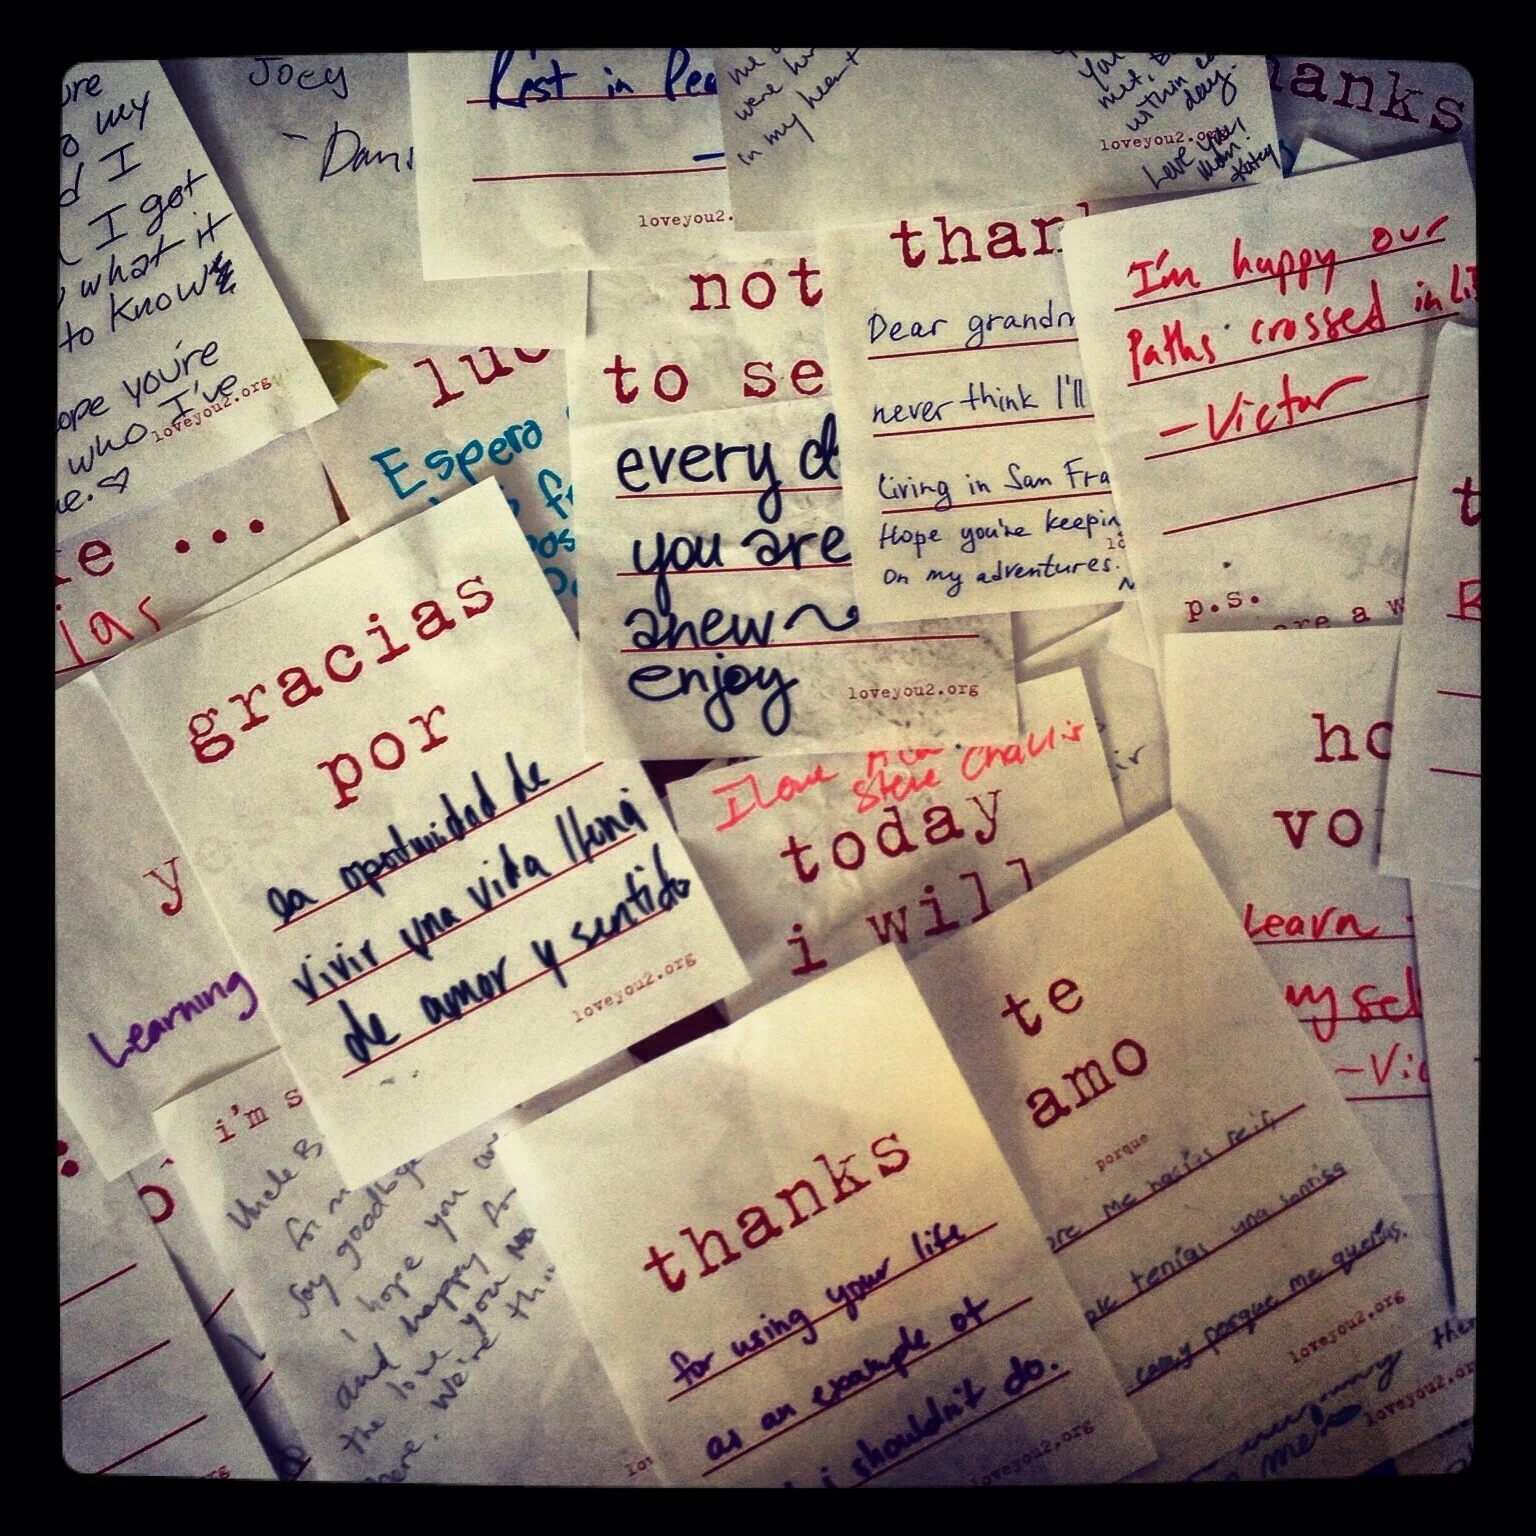 Joey
Dani
my
d I
I got
what it
to know
you're
who I've
loveyou2.org
Rest in
loveyou2.
in my heart
within
day.
loveyou2.org
Love you,
Mom.
Katey
hanks
not
to se
every d
you are
anew~
enjoy
loveyou2.org
than
Dear grandm
never think I'll
Living in San Fra
Hope you're keepin
on my adventures.
I'm happy our
Paths crossed in Li
-Victor
p.s.
are a w
luc
Espero
e ...
ias
gracias
por
la oportunidad de
vivir una vida llena
de amor y sentido
loveyou2.org
y
Learning
I love
Steve Challis
today
i will
ho
vo
Learn
mysel
-Vic
te
amo
porque
me hacías reir,
tenías una sonrisa
porque me querías.
loveyou2.org
i'm s
Uncle B
for
say goodbye
i hope you are
and happy for
the love you
We're
thanks
for using your life
as an example of
i shouldn't do.
loveyou2.org
me
loveyou2.or